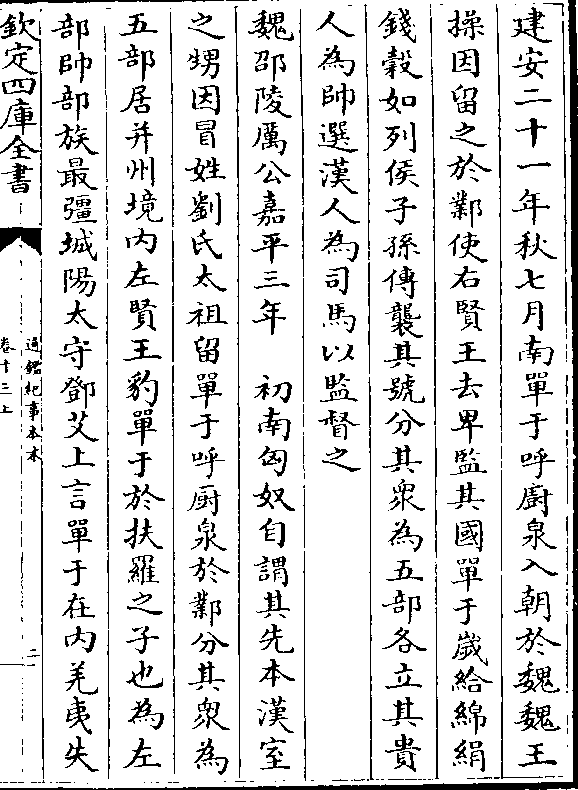 建安二十一年秋七月南單于呼廚泉入朝於魏魏王
操因留之於鄴使右賢王去卑監其國單于歲給綿絹
錢穀如列侯子孫傳襲其號分其衆為五部各立其貴
人為帥選漢人為司馬以監督之
魏邵陵厲公嘉平三年　初南匈奴自謂其先本漢室
之甥因冒姓劉氏太祖留單于呼廚泉於鄴分其衆為
五部居并州境内左賢王豹單于於扶羅之子也為左
部帥部族最彊城陽太守鄧艾上言單于在内羌夷失
欽定四庫全書
通鑑紀事本末
卷十三上
二